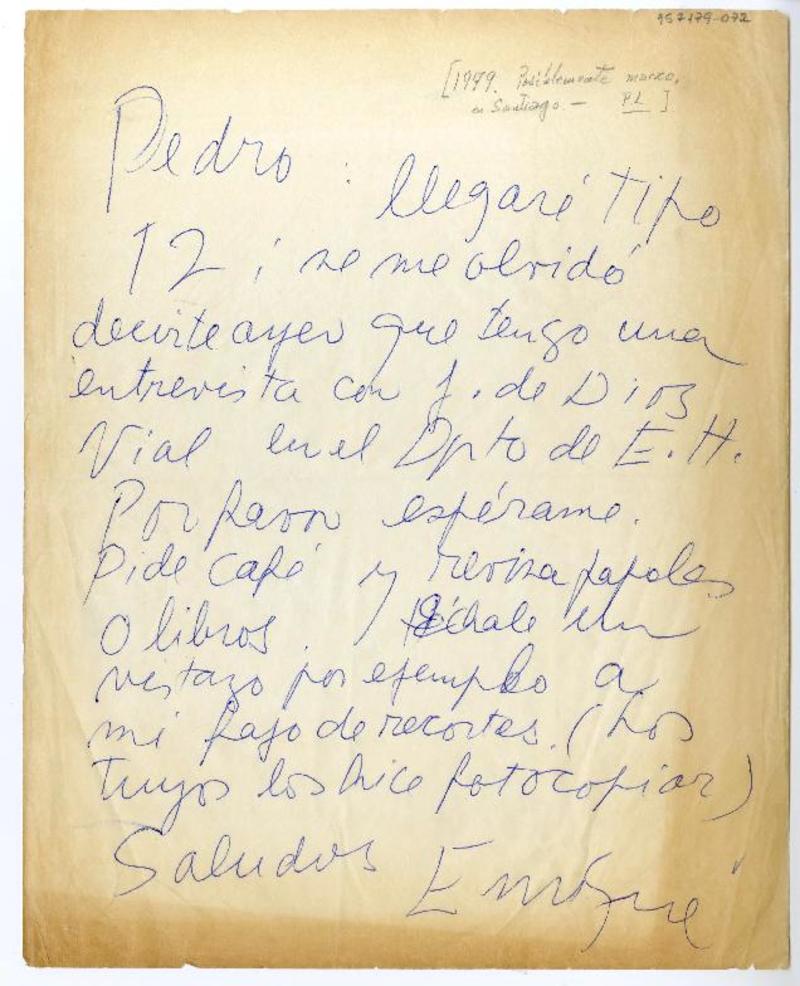 957179-072
[1979. Posiblemente marzo,
en Santiago. — P.L ]
Pedro : llegaré tipo
12 ; se me olvidó
decirte ayer que tengo una
entrevista con J. de Dios
Vial en el Dpto de E. H.
Por favor espérame.
Pide café y revisa papeles
o libros. Échale un
vistazo por ejemplo a
mi fajo de recortes. (Los
tuyos los hice fotocopiar)
Saludos Enrique